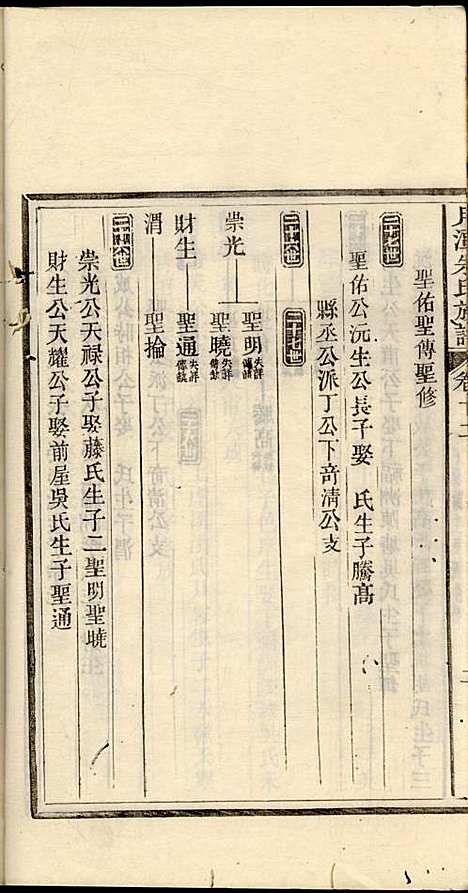 朱氏族譜
卷十二
聖佑聖傳聖修
三十七世
聖佑公沅生公長子娶 氏生子騰高
縣丞公派丁公下奇清公支
三十六世 三十七世
崇光 聖明失詳 聖曉失詳
財生 聖通失詳
渭 聖掄
三十六世
崇光公天祿公子娶藤氏生子二聖明聖曉
財生公天耀公子娶前屋吳氏生子聖通